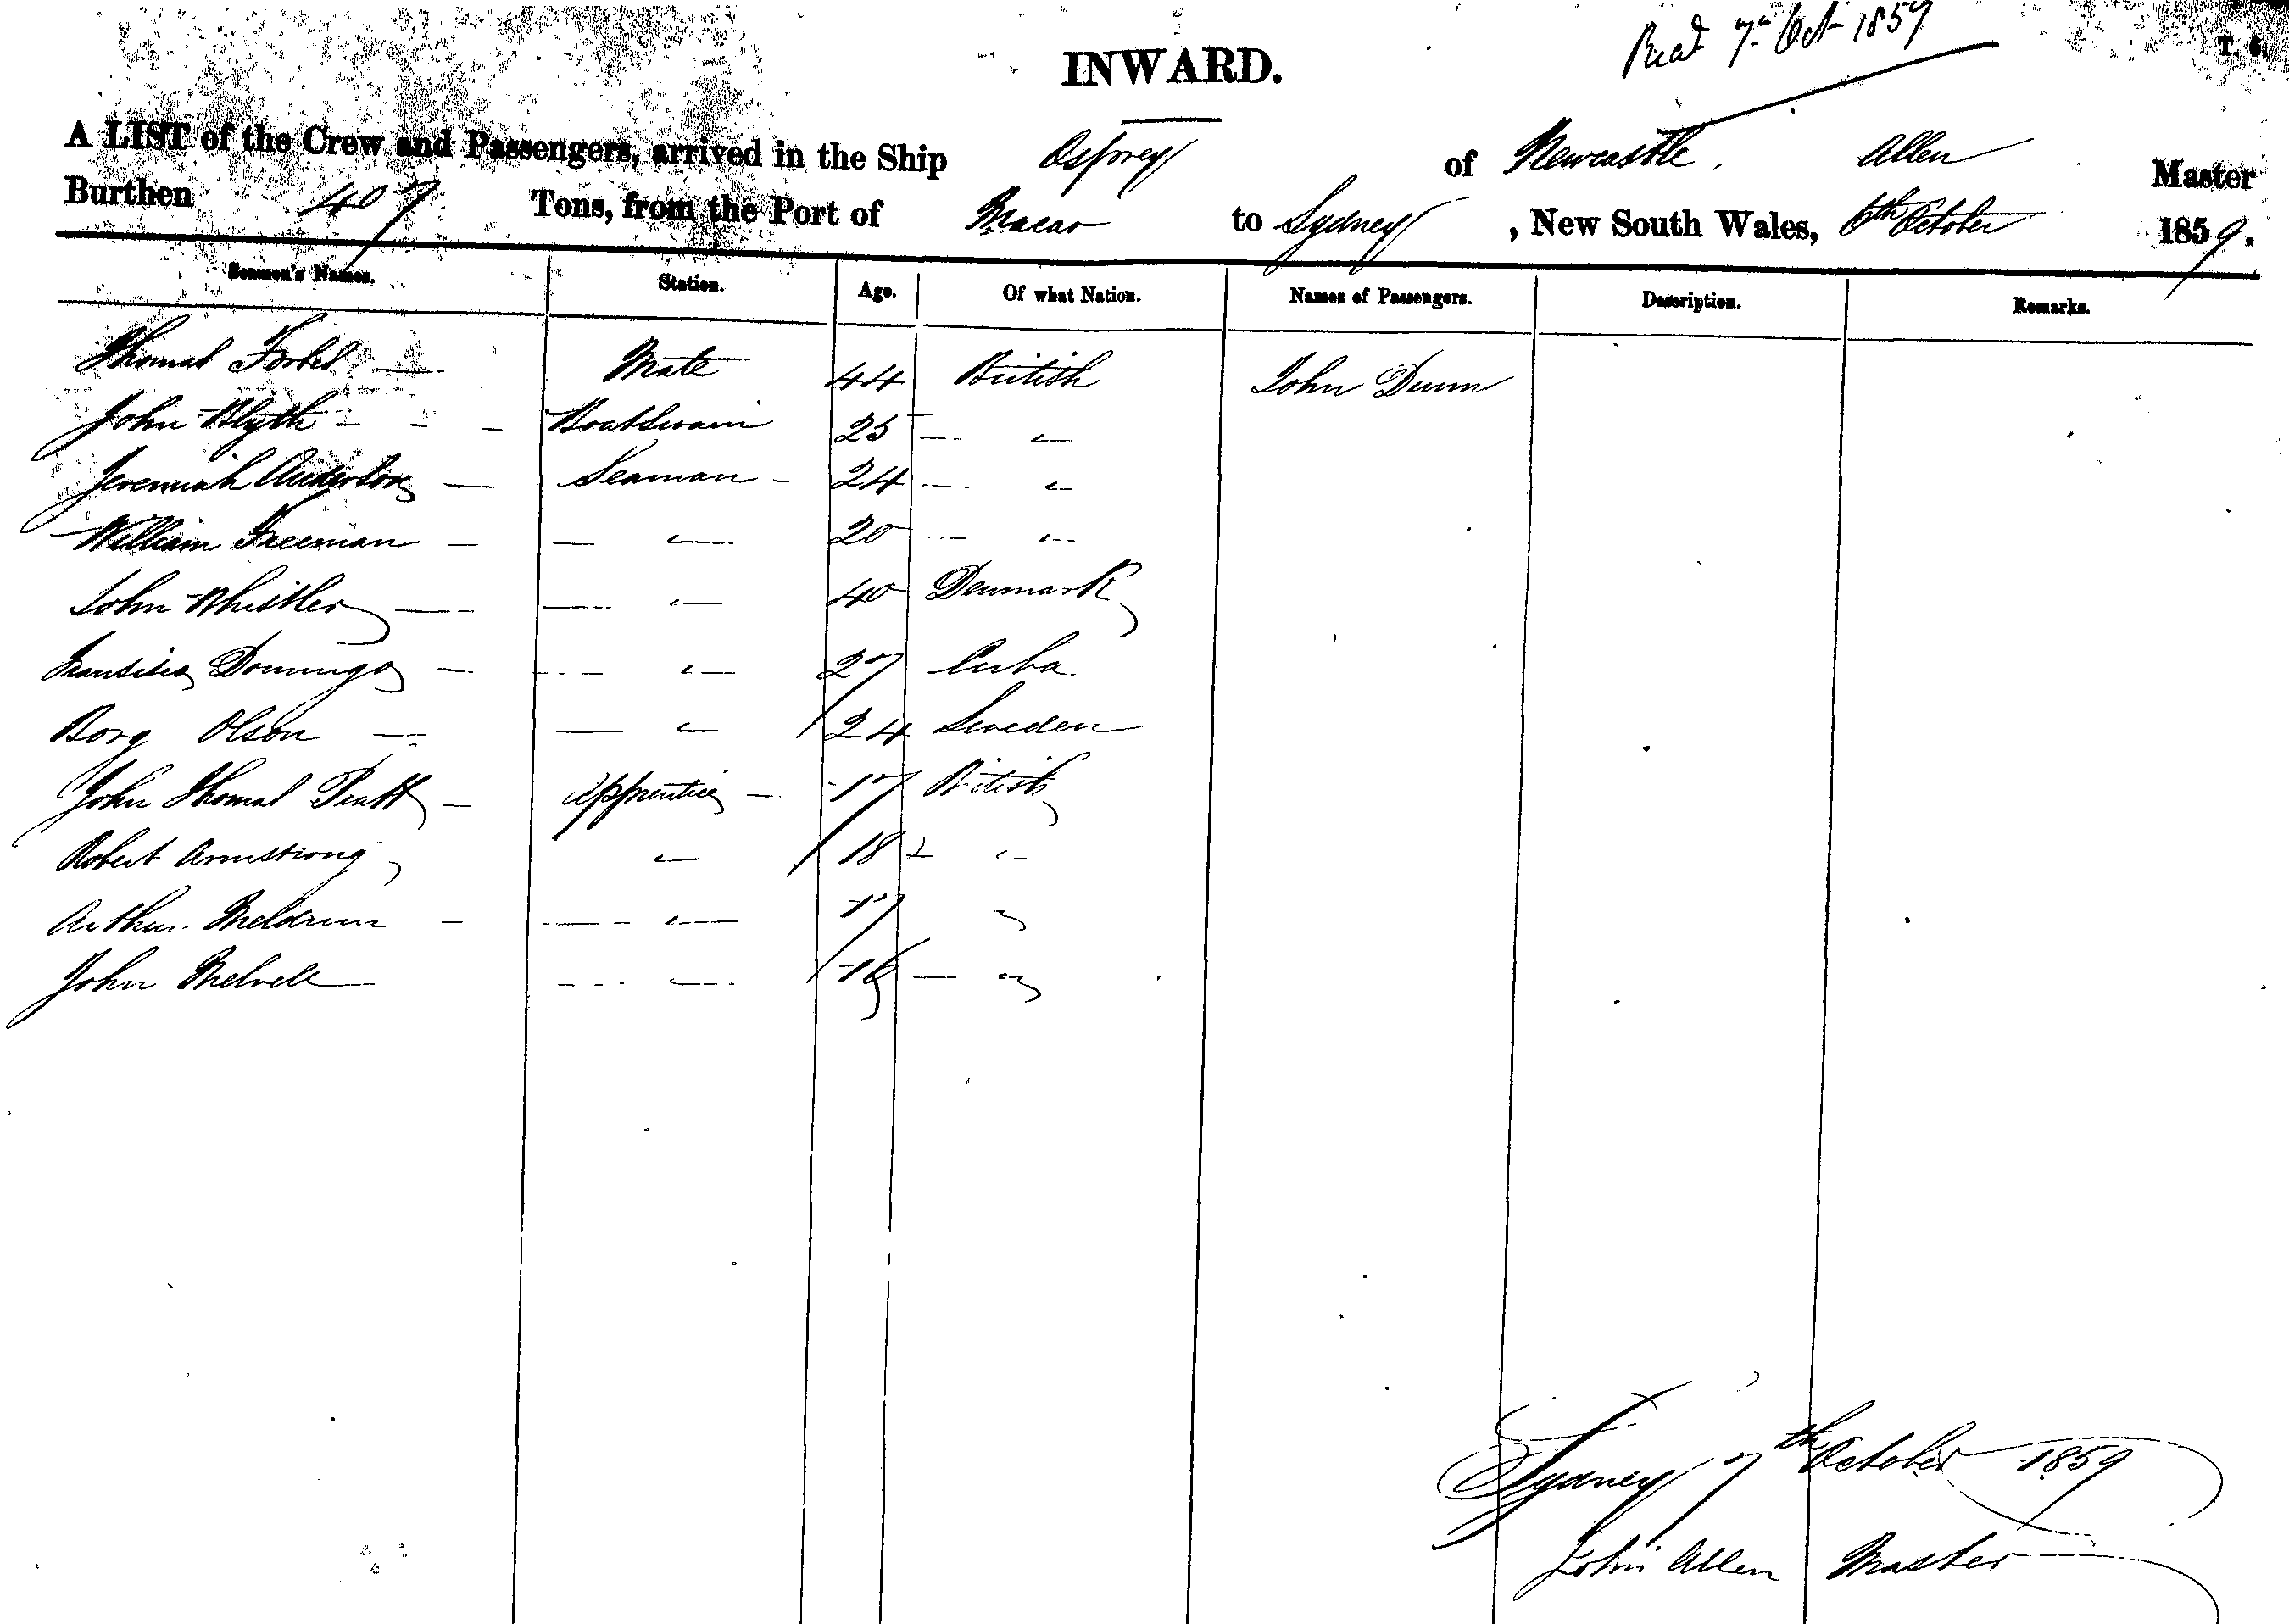 Recd 7th Oct 1859
T. 6.
INWARD.
A LIST of the Crew and Passengers, arrived in the Ship Osprey of Newcastle. Allen Master
Burthen 407 Tons, from the Port of Macao to Sydney, New South Wales, 6th October 1859.
Seamen's Names. Station. Age. Of what Nation. Names of Passengers. Description. Remarks.
Thomas Forbes — Mate 44 British John Dunn
John Blyth - - - Boatswain 25 — "
Jeremiah Anderson — Seaman - 24 — "
William Freeman — — " 20 — "
John Whistler — — " 40 Denmark
Domingo — — " 27 Cuba
Borg Olson — — " 24 Sweden
John Thomas Pratt — Apprentice — 17 British
Robert Armstrong " 18 "
Arthur Meldrum — — " 17 "
John — " 16 — "
Sydney 7th October 1859
John Allen Master